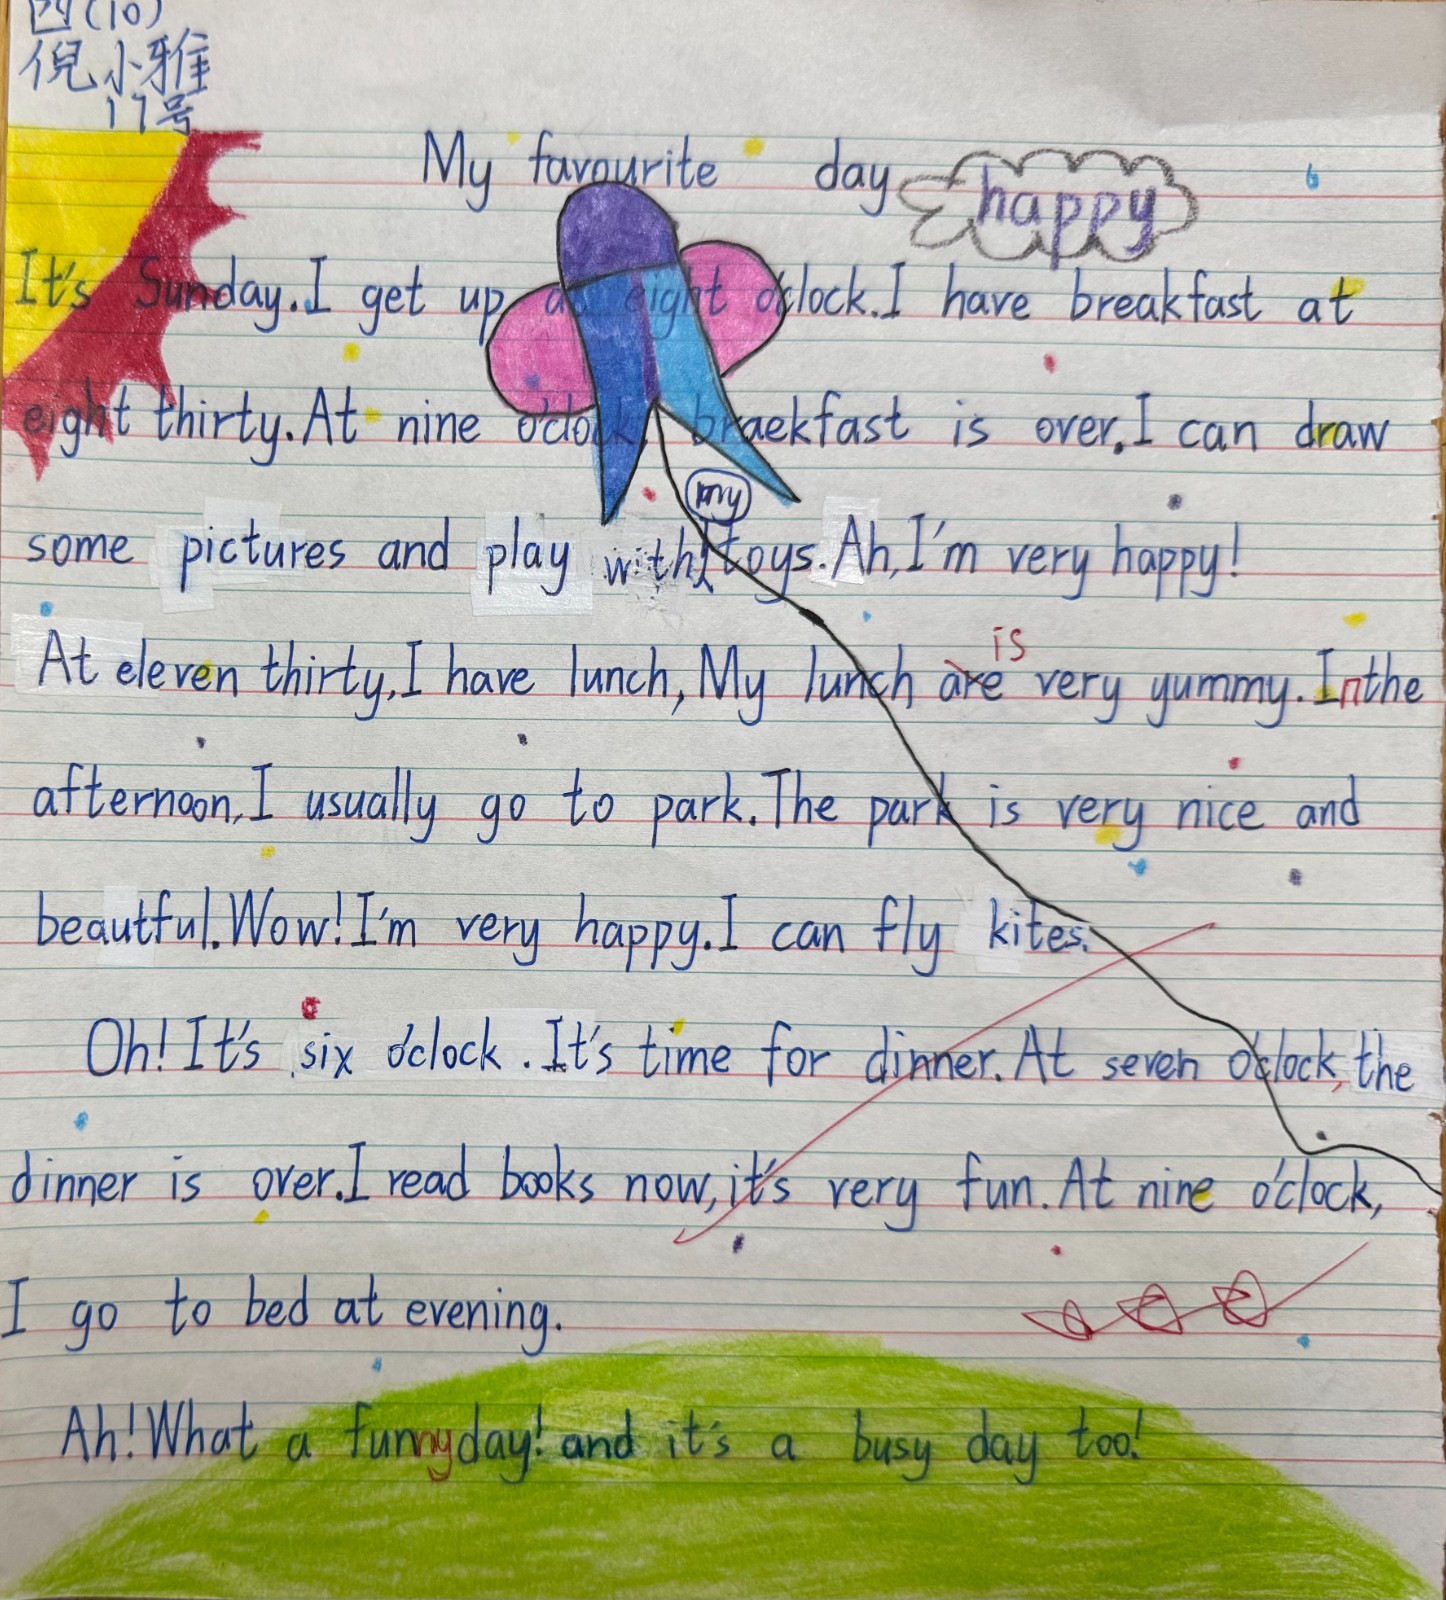 四(10)
倪小雅
17号
My favourite day
happy
It's Sunday.I get up at eight o'clock.I have breakfast at
eight thirty.At nine o'clock, braekfast is over.I can draw
some pictures and play with my toys.Ah,I'm very happy!
At eleven thirty,I have lunch,My lunch are is very yummy.In the
afternoon,I usually go to park.The park is very nice and
beautful.Wow!I'm very happy.I can fly kites.
Oh!It's six o'clock.It's time for dinner.At seven o'clock,the
dinner is over.I read books now,it's very fun.At nine o'clock,
I go to bed at evening.
Ah!What a funny day! and it's a busy day too!